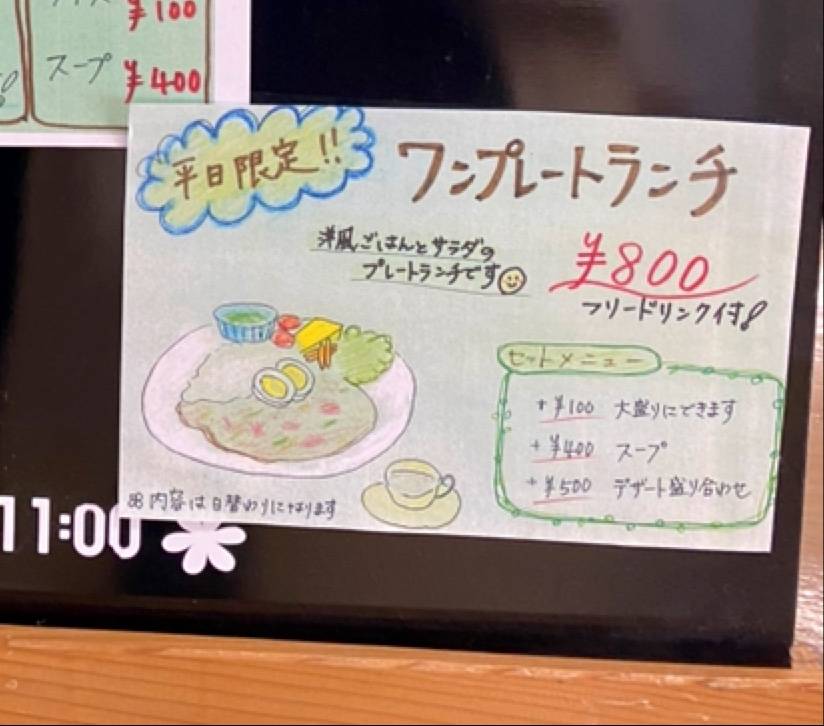 ¥100
スープ ¥400
平日限定!!
ワンプレートランチ
洋風ごはんとサラダの
プレートランチです
¥800
フリードリンク付!
セットメニュー
+¥100 大盛りにできます
+¥400 スープ
+¥500 デザート盛り合わせ
※内容は日替わりになります
11:00